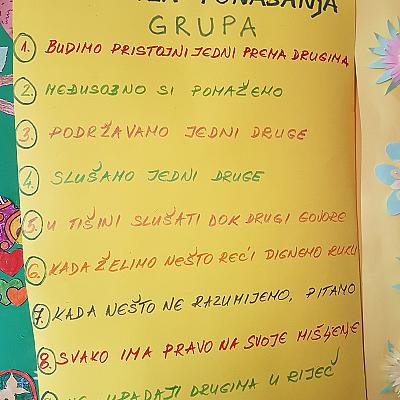 PONAŠANJA
GRUPA
1. BUDIMO PRISTOJNI JEDNI PREMA DRUGIMA
2. MEĐUSOBNO SI POMAŽEMO
3. PODRŽAVAMO JEDNI DRUGE
4. SLUŠAMO JEDNI DRUGE
5. U TIŠINI SLUŠATI DOK DRUGI GOVORE
6. KADA ŽELIMO NEŠTO REĆI DIGNEMO RUKU
7. KADA NEŠTO NE RAZUMIJEMO, PITAMO
8. SVAKO IMA PRAVO NA SVOJE MIŠLJENJE
NE UPADAJ DRUGIMA U RIJEČ